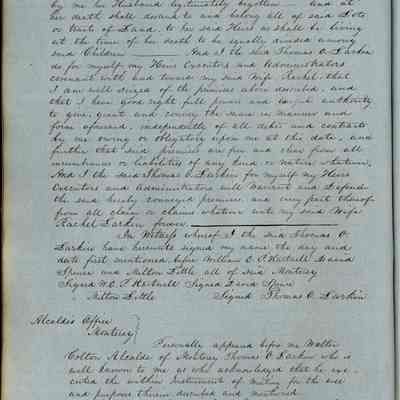 by me her Husband legitimately begotten — And at
her death shall descend to and belong all of said Lots
or tracts of Land, to her said Heirs as shall be living
at the time of her death to be equally divided among
said Children — And I the said Thomas O. Larkin
do for myself, my Heirs Executors and Administrators
covenant with and toward my said Wife Rachel, that
I am well seized of the premises above described, and
that I have good right full power and lawful authority
to give, grant and convey the same in manner and
form aforesaid, independently of all debts and contracts
by me owing or obligatory upon me at this date, and
further that said premises are free and clear from all
incumbrances or liabilities of any kind or nature whatever.
And I the said Thomas O. Larkin for myself my Heirs
Executors and Administrators will Warrant and Defend
the said hereby conveyed premises, and every part thereof
from all claim or claims whatever unto my said Wife
Rachel Larkin forever.
In Witness whereof I the said Thomas O.
Larkin have hereunto signed my name the day and
date first mentioned before William E. P. Hartnell David
Spence and Milton Little all of said Monterey
Signed W. E. P. Hartnell Signed David Spence
Milton Little Signed Thomas O. Larkin
Alcaldes Office
Monterey
Personally appeared before me Walter
Colton Alcalde of Monterey Thomas O Larkin who is
well known to me as who acknowledged that he exe-
cuted the within Instrument of writing for the use
and purpose therein described and mentioned